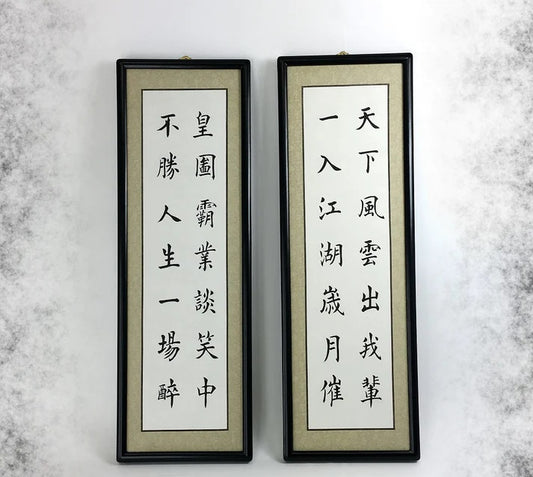 天下風雲出我輩
一入江湖歲月催
皇圖霸業談笑中
不勝人生一場醉